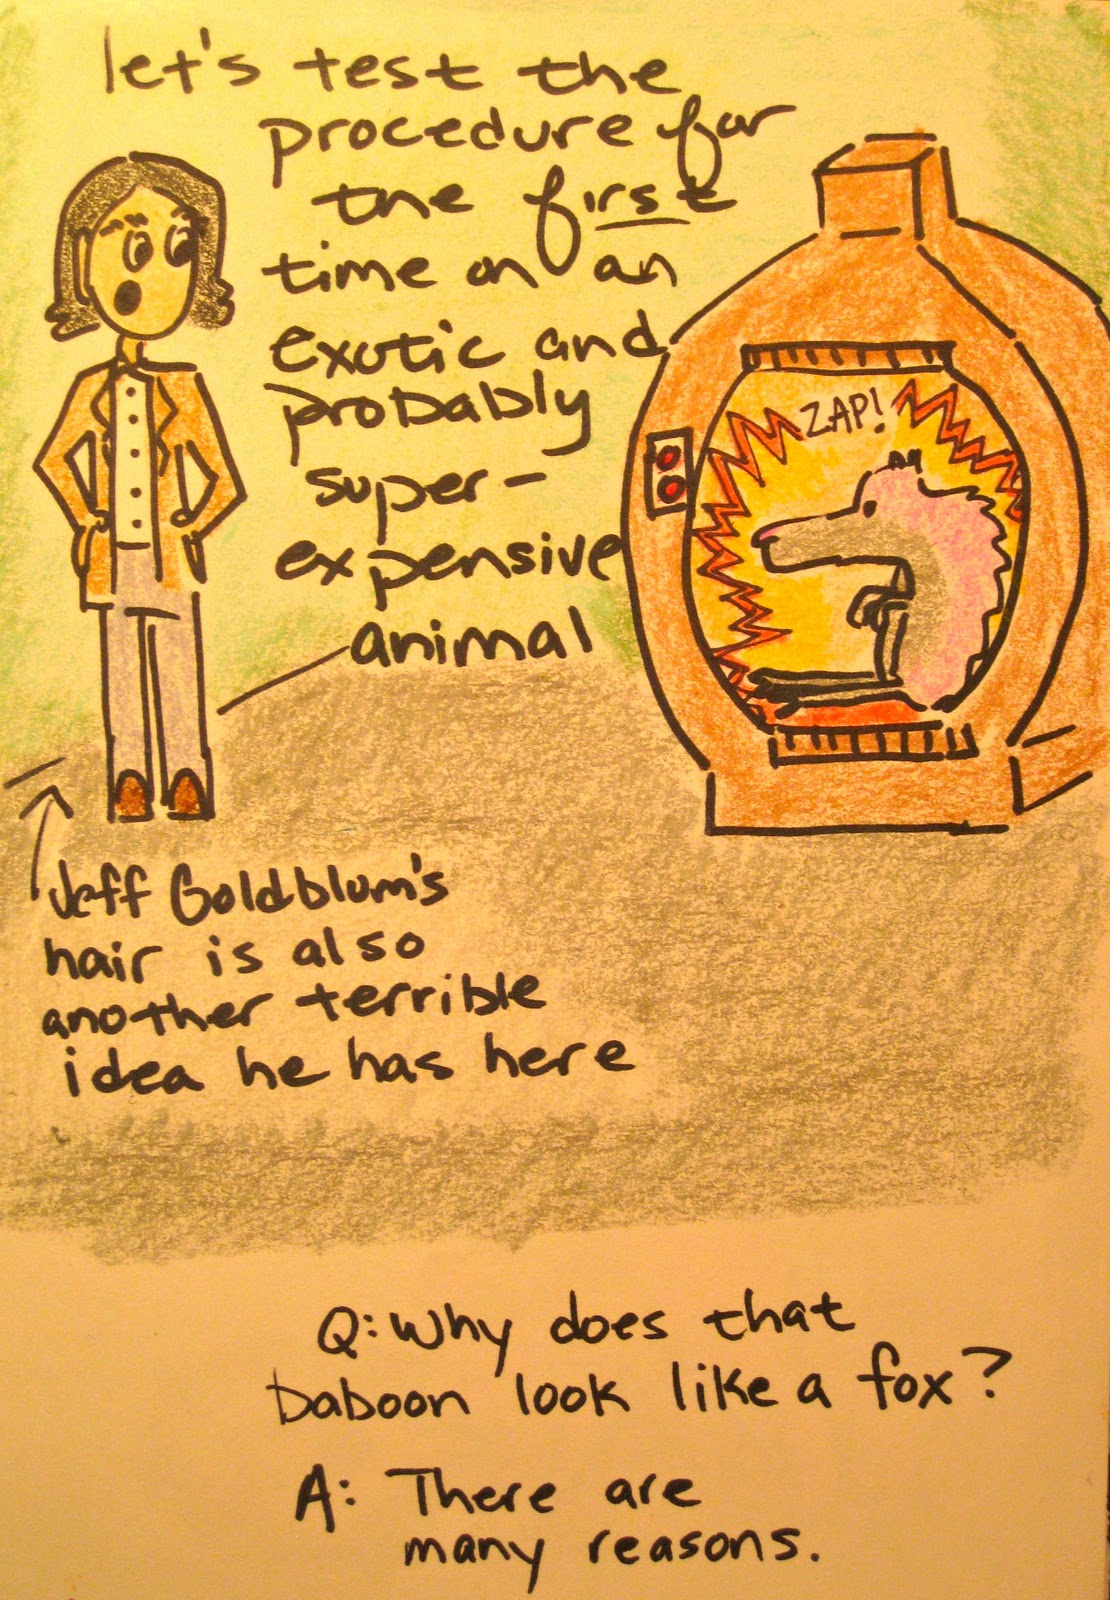 let's test the
procedure for
the first
time on an
exotic and
probably
super-
expensive
animal
ZAP!
Jeff Goldblum's
hair is also
another terrible
idea he has here
Q: Why does that
baboon look like a fox?
A: There are
many reasons.